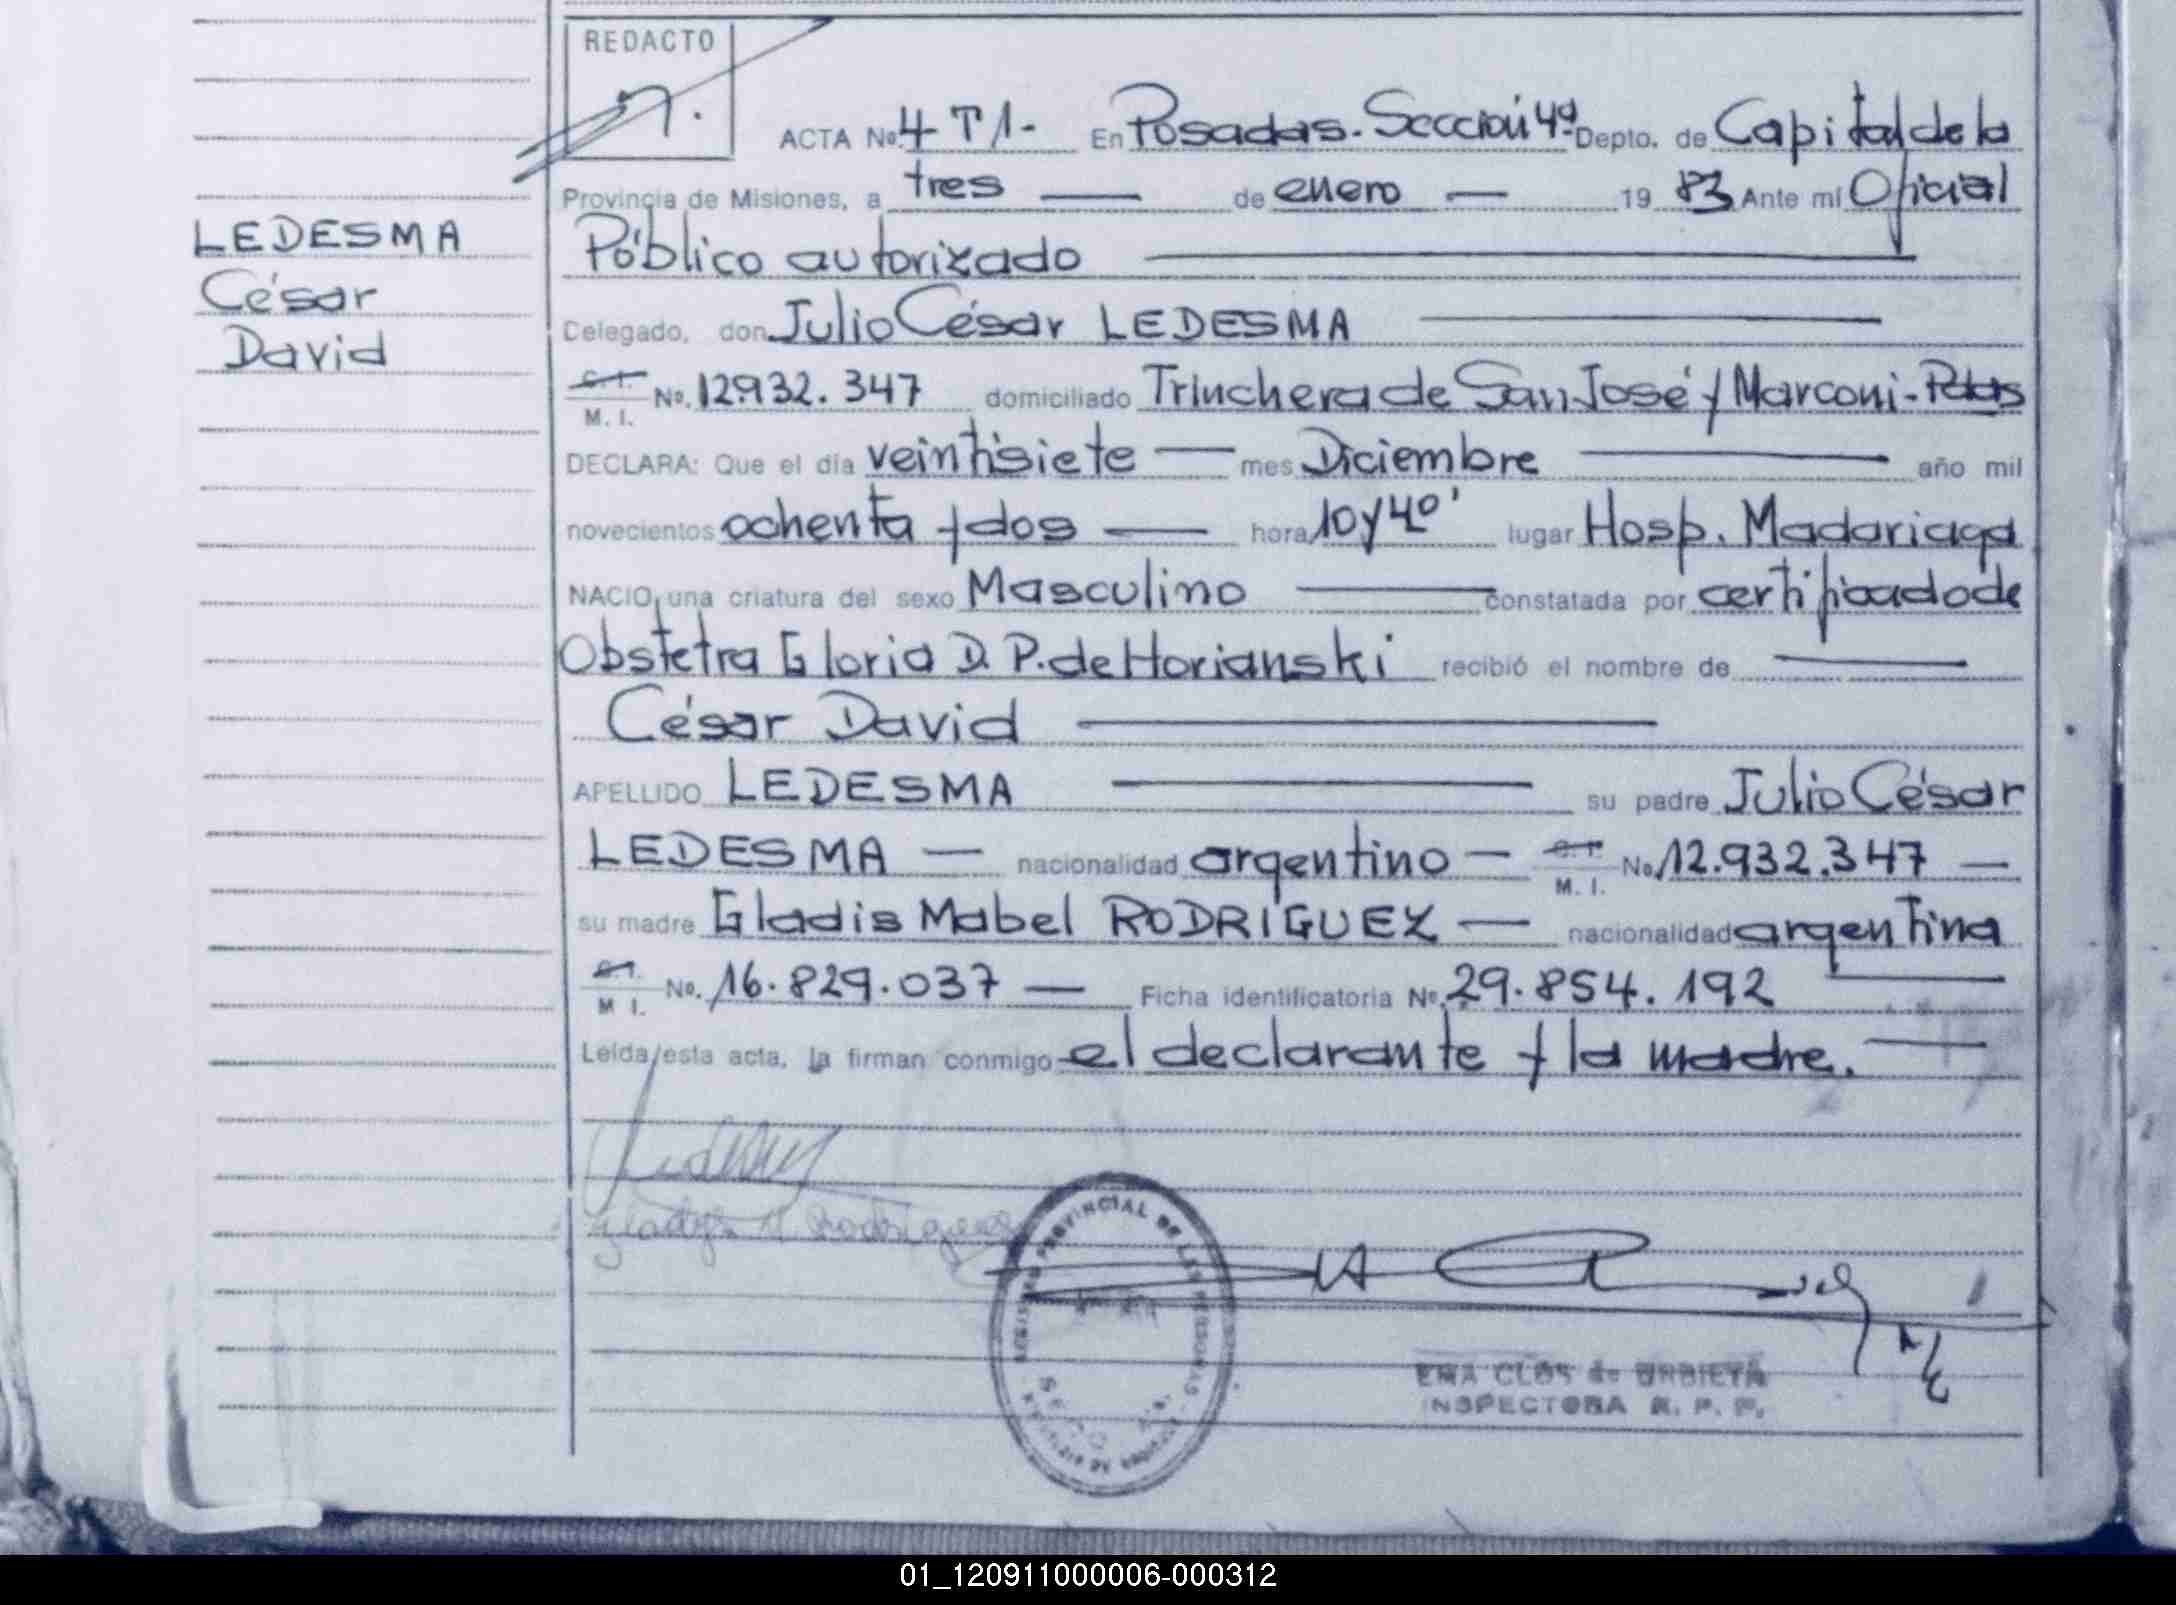 REDACTO
ACTA No. 4 T 1- En Posadas. Sección 4ª Depto. de Capital de la
Provincia de Misiones, a tres de enero 1983 Ante mí Oficial
Público autorizado
LEDESMA
César
David
Delegado, don Julio César LEDESMA
C.I. M. I. No. 12.932.347 domiciliado Trinchera de San José y Marconi - Pdas
DECLARA: Que el día veintisiete mes Diciembre año mil
novecientos ochenta y dos hora 10 y 40' lugar Hosp. Madariaga
NACIO, una criatura del sexo Masculino constatada por certificado de
Obstetra Gloria D. P. de Horianski recibió el nombre de
César David
APELLIDO LEDESMA su padre Julio César
LEDESMA nacionalidad argentino C.I. M. I. No. 12.932.347
su madre Gladis Mabel RODRIGUEZ nacionalidad argentina
C.I. M I. No. 16.829.037 Ficha identificatoria No. 29.854.192
Leída esta acta, la firman conmigo el declarante y la madre.
Gladys M Rodriguez
REGISTRO PROVINCIAL DE LAS PERSONAS
EMA CLOS de URBIETA
INSPECTORA R. P. P.
01_120911000006-000312